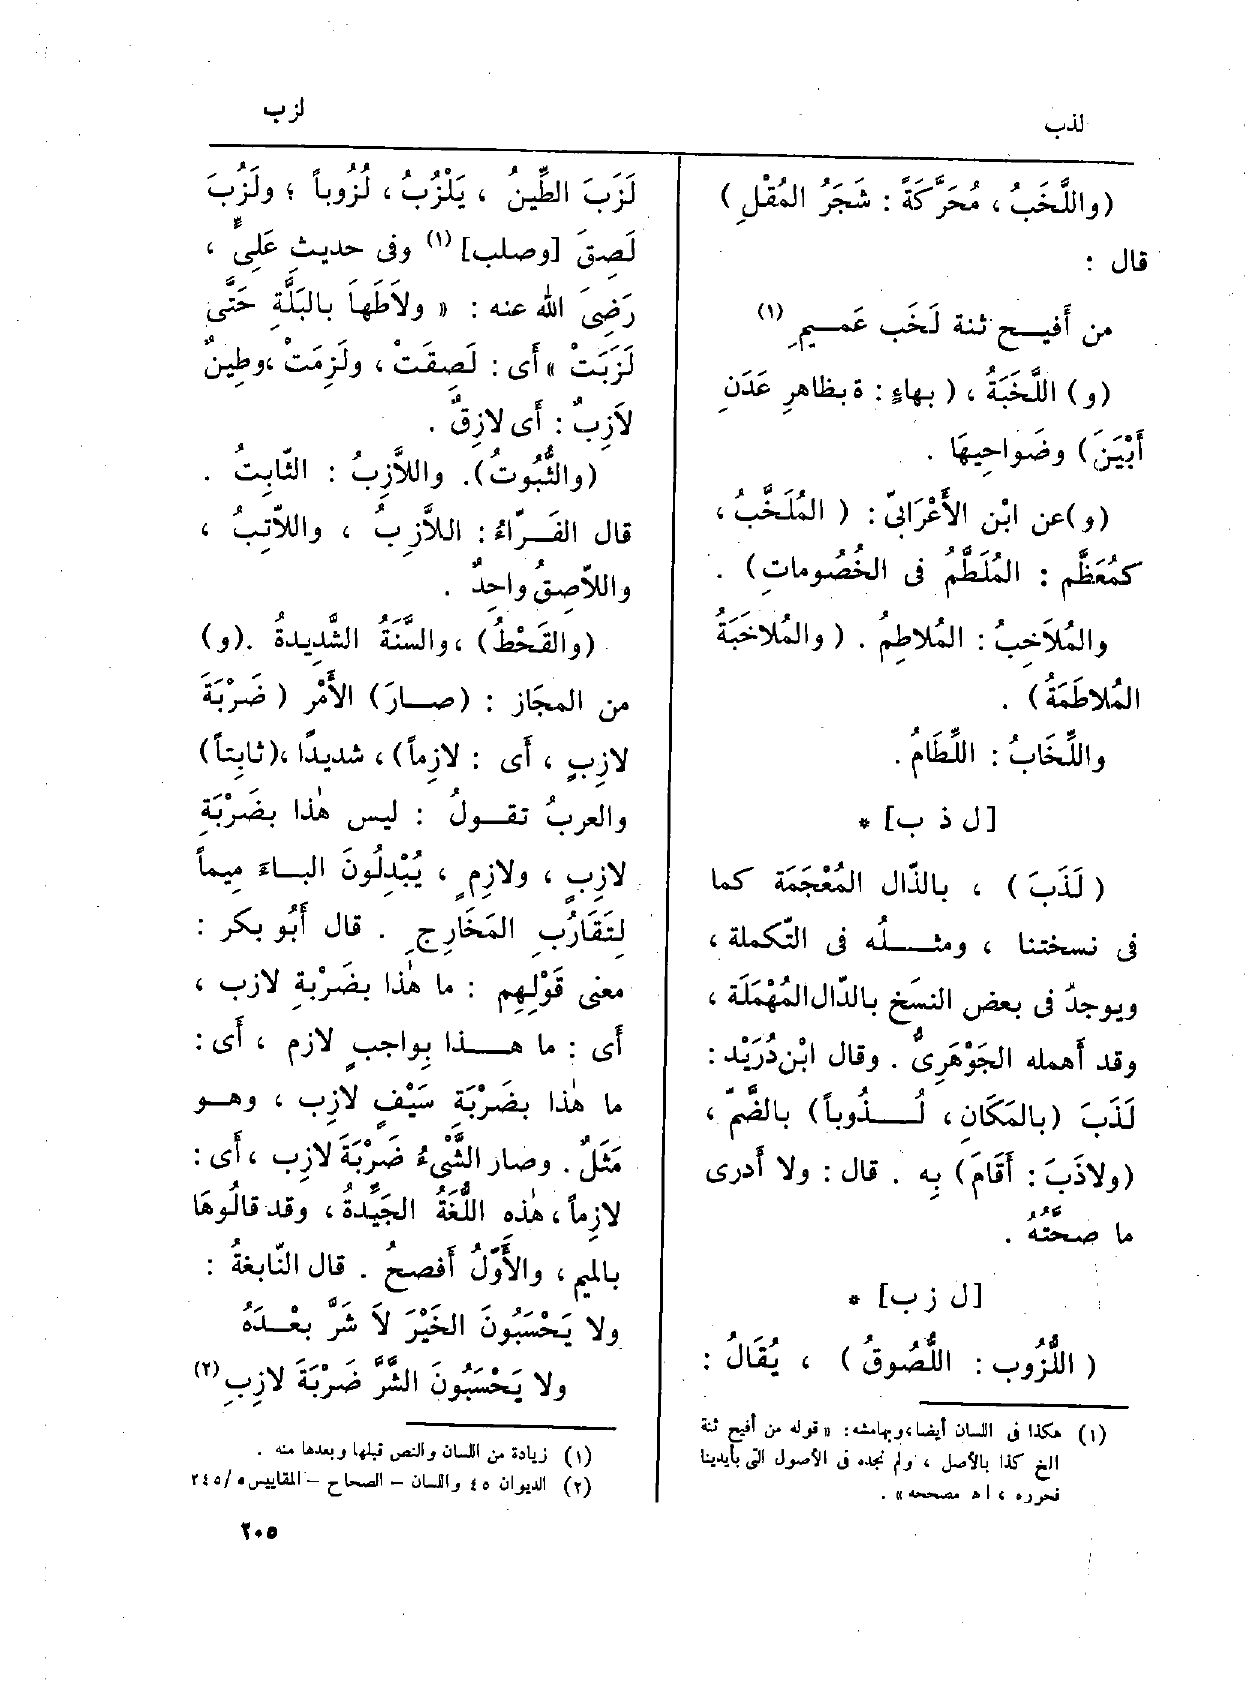 لذب
لزب
(واللَّخَبُ، مُحَرَّكَةً : شَجَرُ المُقْلِ)
قال :
من أَفيـــح ثنة لَخَب عَمـــيمِ (١)
(و) اللَّخَبَةُ، (بهاءٍ : ة بظاهرِ عَدَنِ
أَبْيَنَ) وضَواحِيهَا .
(و)عن ابْن الأَعْرَابىّ: ( المُلَخَّبُ،
كمُعَظَّم : المُلَطَّمُ فى الخُصُومات) .
والمُلاَخِبُ : المُلاطِمُ . (والمُلاخَبَةُ
المُلاطَمَةُ) .
واللِّخَابُ : اللِّطَامُ .
[ل ذ ب] *
(لَذَبَ) ، بالذّال المُعْجَمَة كما
فى نسختنا ، ومثـــله فى التّكملة،
ويوجدُ فى بعض النسَخ بالدّال المُهْمَلَة،
وقد أَهمله الجَوْهَرِىُّ . وقال ابْن دُرَيْد:
لَذَبَ (بالمَكَانِ، لُـــذُوباً) بالضَّمّ ،
(ولاذَبَ : أَقَامَ) بِه . قال : ولا أَدرى
ما صحَّتُهُ .
[ل ز ب] *
(اللُّزُوب : اللُّصُوقُ) ، يُقَالُ :
(١) هكذا فى اللسان أيضا، وبهامشه: «قوله من أفيح ثنة
الخ كذا بالأصل ، ولم نجده فى الأصول التى بأيدينا
فحرره ، ا ه مصححه» .
لَزَبَ الطِّينُ ، يَلْزُبُ، لُزُوباً ؛ ولَزُبَ
لَصِقَ [وصلب] (١) وفى حديثِ عَلِىٍّ ،
رَضِىَ الله عنه : « ولاَطَهاَ بالبَلَّةِ حَتَّى
لَزَبَتْ » أَى : لَصِقَتْ ، ولَزِمَتْ ، وطِينٌ
لاَزِبٌ : أَى لازِقٌ .
(والثُّبُوتُ). واللاَّزِبُ : الثّابِتُ .
قال الفَـــرَّاءُ : اللاَّزِبُ ، واللاّتِبُ ،
واللاّصِقُ واحِدٌ .
(والقَحْطُ) ، والسَّنَةُ الشَّدِيدةُ .(و)
من المجَاز : (صـــارَ) الأَمْر (ضَرْبَةَ
لازِبٍ ، أَى : لازِماً) ، شديدًا ،(ثابِتاً)
والعربُ تقـــولُ : ليس هٰذا بضَرْبَةِ
لازِبٍ ، ولازِمٍ ، يُبْدِلُونَ البـــاءَ مِيماً
لِتَقَارُبِ المَخَارِجِ . قال أَبُو بكر :
معنى قَوْلِهِم : ما هٰذا بضَرْبةِ لازب ،
أَى : ما هـــذا بِواجِبٍ لازم ، أَى :
ما هٰذا بضَرْبَةِ سَيْفٍ لازِب ، وهـــو
مَثَلٌ . وصار الشَّىْءُ ضَرْبَةَ لازِب ، أَى :
لازِماً ، هٰذه اللُّغَةُ الجَيِّدةُ ، وقد قالُوهَا
بالميم ، والأَوّلُ أَفصحُ . قال النّابغةُ :
ولا يَحْسَبُونَ الخَيْرَ لاَ شَرَّ بعْـــدَهُ
ولا يَحْسَبُونَ الشَّرَّ ضَرْبَةَ لازِبِ (٢)
(١) زيادة من اللسان والنص قبلها وبعدها منه .
(٢) الديوان ٤٥ واللسان – الصحاح – المقاييس ٥/٢٤٥
٢٠٥